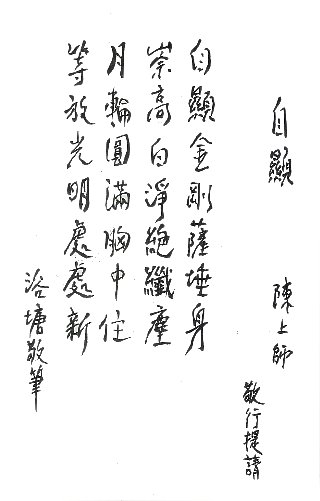 自顯
陳上師
敬行提請
自顯金剛薩埵身
崇高白淨絕纖塵
月輪圓滿胸中住
等放光明處處新
浴塘敬筆